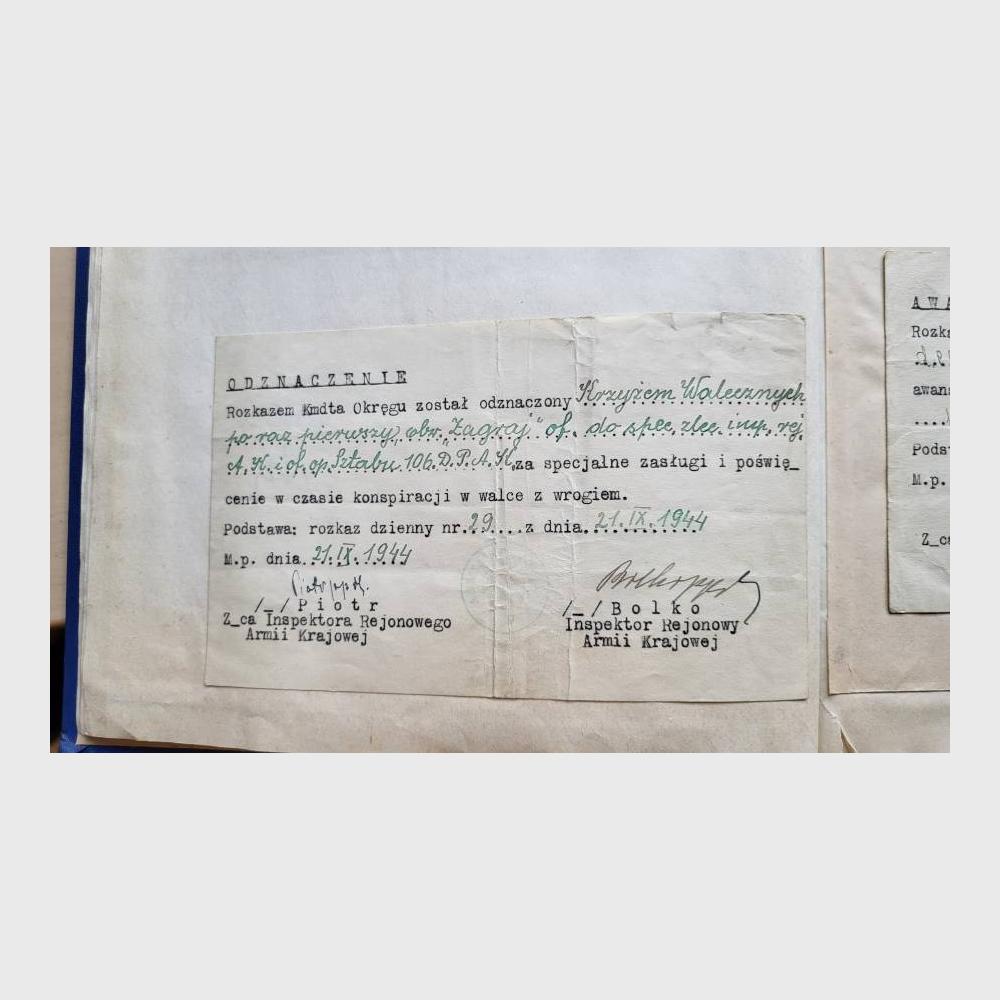 ODZNACZENIE
Rozkazem Kmdta Okręgu został odznaczony Krzyżem Walecznych
po raz pierwszy, obw. "Zagraj" of. do spec. zlec. insp. rej.
A.K. i of. op. Sztabu 106.D.P.A.K. za specjalne zasługi i poświę_
cenie w czasie konspiracji w walce z wrogiem.
Podstawa: rozkaz dzienny nr.29....z dnia.21.IX.1944
M.p. dnia.21.IX.1944
Piotr ppłk.
/_/ Piotr
Z_ca Inspektora Rejonowego
Armii Krajowej
Bolko
/_/ Bolko
Inspektor Rejonowy
Armii Krajowej
AWA
Rozka
awans
Pods
M.p.
Z_ca